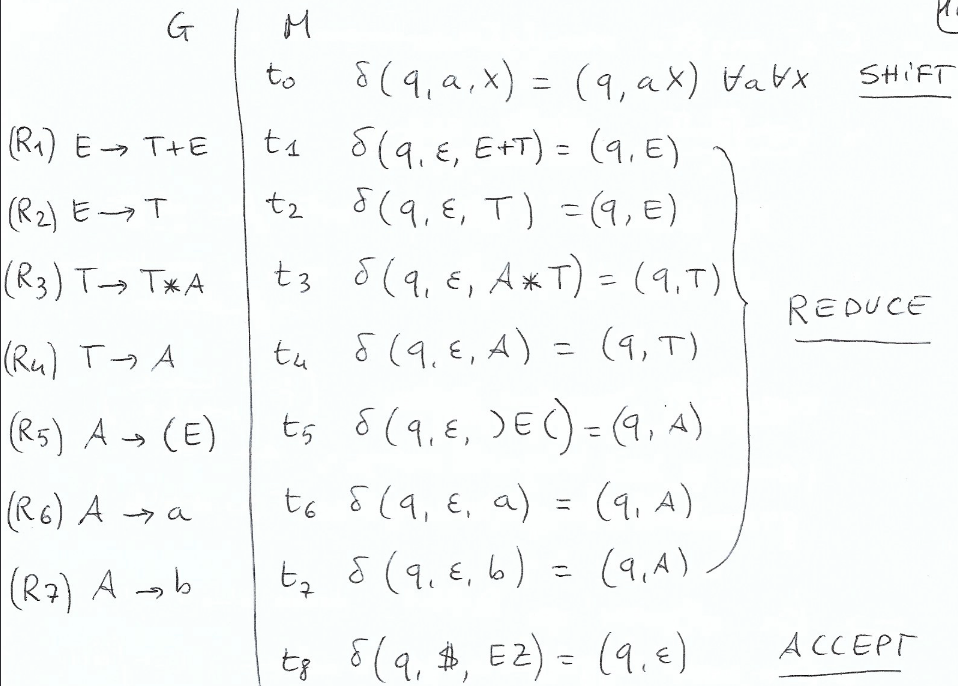 G M
t0 δ(q, a, X) = (q, aX) ∀a∀x SHiFT
(R1) E → T+E t1 δ(q, ε, E+T) = (q, E)
(R2) E → T t2 δ(q, ε, T) = (q, E)
(R3) T → T*A t3 δ(q, ε, A*T) = (q, T)
REDUCE
(R4) T → A t4 δ(q, ε, A) = (q, T)
(R5) A → (E) t5 δ(q, ε, )E() = (q, A)
(R6) A → a t6 δ(q, ε, a) = (q, A)
(R7) A → b t7 δ(q, ε, b) = (q, A)
t8 δ(q, $, EZ) = (q, ε) ACCEPT